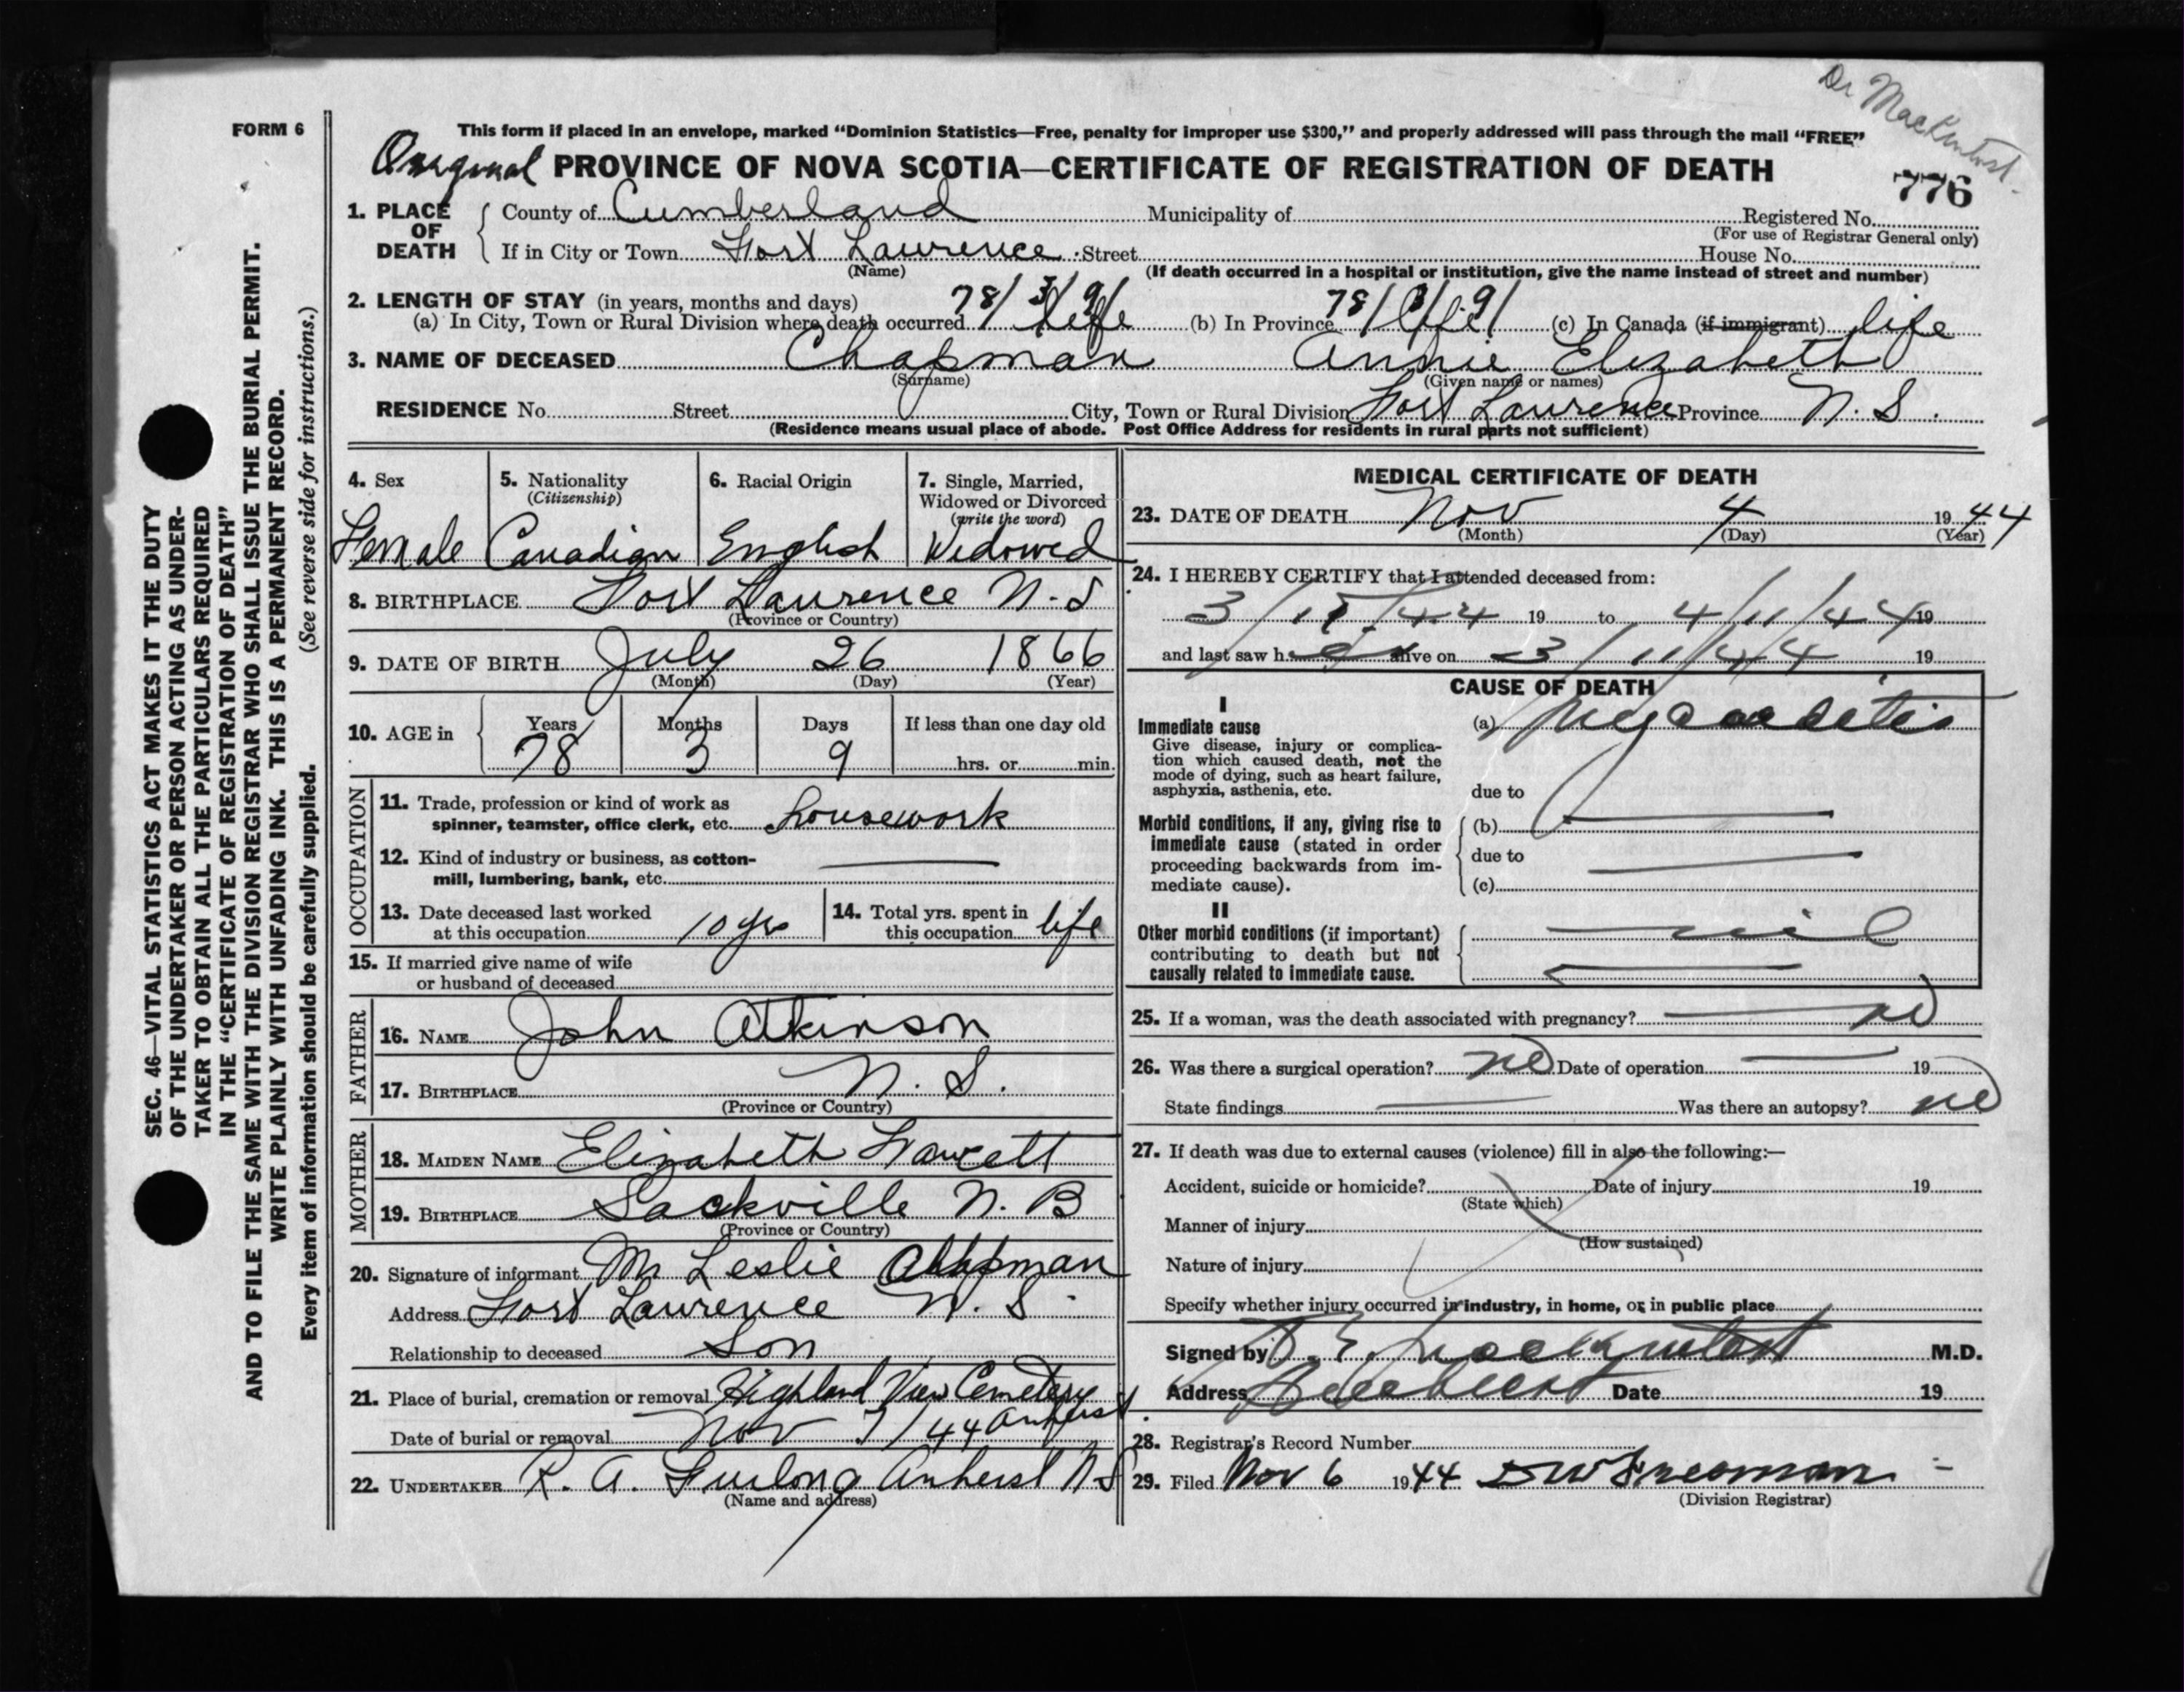 Dr MacKintosh.
FORM 6
This form if placed in an envelope, marked "Dominion Statistics—Free, penalty for improper use $300," and properly addressed will pass through the mail "FREE"
Original PROVINCE OF NOVA SCOTIA—CERTIFICATE OF REGISTRATION OF DEATH
776
1. PLACE OF DEATH
County of Cumberland Municipality of Registered No.
(For use of Registrar General only)
If in City or Town Fort Lawrence Street House No.
(Name) (If death occurred in a hospital or institution, give the name instead of street and number)
2. LENGTH OF STAY (in years, months and days) 78/3/9/ 78/3/9/
(a) In City, Town or Rural Division where death occurred life (b) In Province life (c) In Canada (if immigrant) life
3. NAME OF DECEASED Chapman Annie Elizabeth
(Surname) (Given name or names)
RESIDENCE No. Street City, Town or Rural Division Fort Lawrence Province N.S.
(Residence means usual place of abode. Post Office Address for residents in rural parts not sufficient)
4. Sex
Female
5. Nationality
(Citizenship)
Canadian
6. Racial Origin
English
7. Single, Married,
Widowed or Divorced
(write the word)
Widowed
8. BIRTHPLACE Fort Lawrence N.S
(Province or Country)
9. DATE OF BIRTH July 26 1866
(Month) (Day) (Year)
10. AGE in
Years Months Days If less than one day old
78 3 9 hrs. or min.
OCCUPATION
11. Trade, profession or kind of work as
spinner, teamster, office clerk, etc. housework
12. Kind of industry or business, as cotton-
mill, lumbering, bank, etc.
13. Date deceased last worked
at this occupation 10 yrs
14. Total yrs. spent in
this occupation life
15. If married give name of wife
or husband of deceased
FATHER
16. NAME John Atkinson
17. BIRTHPLACE N.S.
(Province or Country)
MOTHER
18. MAIDEN NAME Elizabeth Fawcett
19. BIRTHPLACE Sackville N.B
(Province or Country)
20. Signature of informant Mr Leslie Chapman
Address Fort Lawrence N.S.
Relationship to deceased Son
21. Place of burial, cremation or removal Highland View Cemetery
Amherst
Date of burial or removal Nov 7/44
22. UNDERTAKER R. A. Furlong Amherst N.S
(Name and address)
MEDICAL CERTIFICATE OF DEATH
23. DATE OF DEATH Nov 4 1944
(Month) (Day) (Year)
24. I HEREBY CERTIFY that I attended deceased from:
3/11/44 19 to 4/11/44 19
and last saw her alive on 3/11/44 19
CAUSE OF DEATH
I
Immediate cause
Give disease, injury or complica-
tion which caused death, not the
mode of dying, such as heart failure,
asphyxia, asthenia, etc.
(a) Myocarditis
due to
Morbid conditions, if any, giving rise to
immediate cause (stated in order
proceeding backwards from im-
mediate cause).
(b)
due to
(c)
II
Other morbid conditions (if important)
contributing to death but not
causally related to immediate cause.
nil
25. If a woman, was the death associated with pregnancy? no
26. Was there a surgical operation? no Date of operation 19
State findings Was there an autopsy? no
27. If death was due to external causes (violence) fill in also the following:—
Accident, suicide or homicide? Date of injury 19
(State which)
Manner of injury
(How sustained)
Nature of injury
Specify whether injury occurred in industry, in home, or in public place
Signed by Mackintosh M.D.
Address Amherst Date 19
28. Registrar's Record Number
29. Filed Nov 6 1944
(Division Registrar)
SEC. 46—VITAL STATISTICS ACT MAKES IT THE DUTY
OF THE UNDERTAKER OR PERSON ACTING AS UNDER-
TAKER TO OBTAIN ALL THE PARTICULARS REQUIRED
IN THE "CERTIFICATE OF REGISTRATION OF DEATH"
AND TO FILE THE SAME WITH THE DIVISION REGISTRAR WHO SHALL ISSUE THE BURIAL PERMIT.
WRITE PLAINLY WITH UNFADING INK. THIS IS A PERMANENT RECORD.
Every item of information should be carefully supplied. (See reverse side for instructions.)